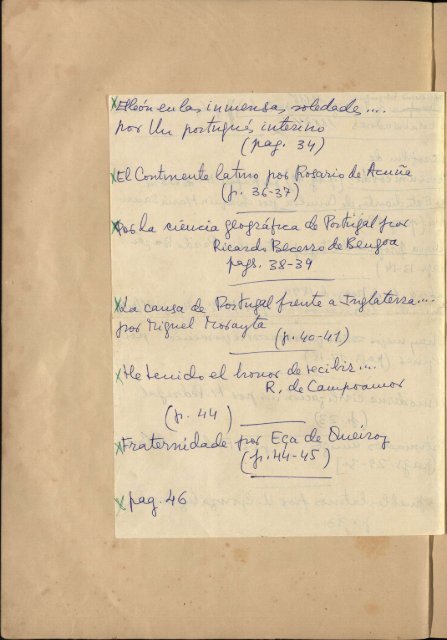 x El león en las inmensas soledades...
por Un portugués interino
(pag. 34)
x El Continente latino por Rosario de Acuña
(p. 36-37)
x Por la ciencia geográfica de Portugal por
Ricardo Becerro de Bengoa
pags. 38-39
x La causa de Portugal frente a Inglaterra...
por Miguel Morayta
(p. 40-41)
x He tenido el honor de recibir...
R. de Campoamor
(p. 44)
x Fraternidade por Eça de Queiroz
(p. 44-45)
x pag. 46